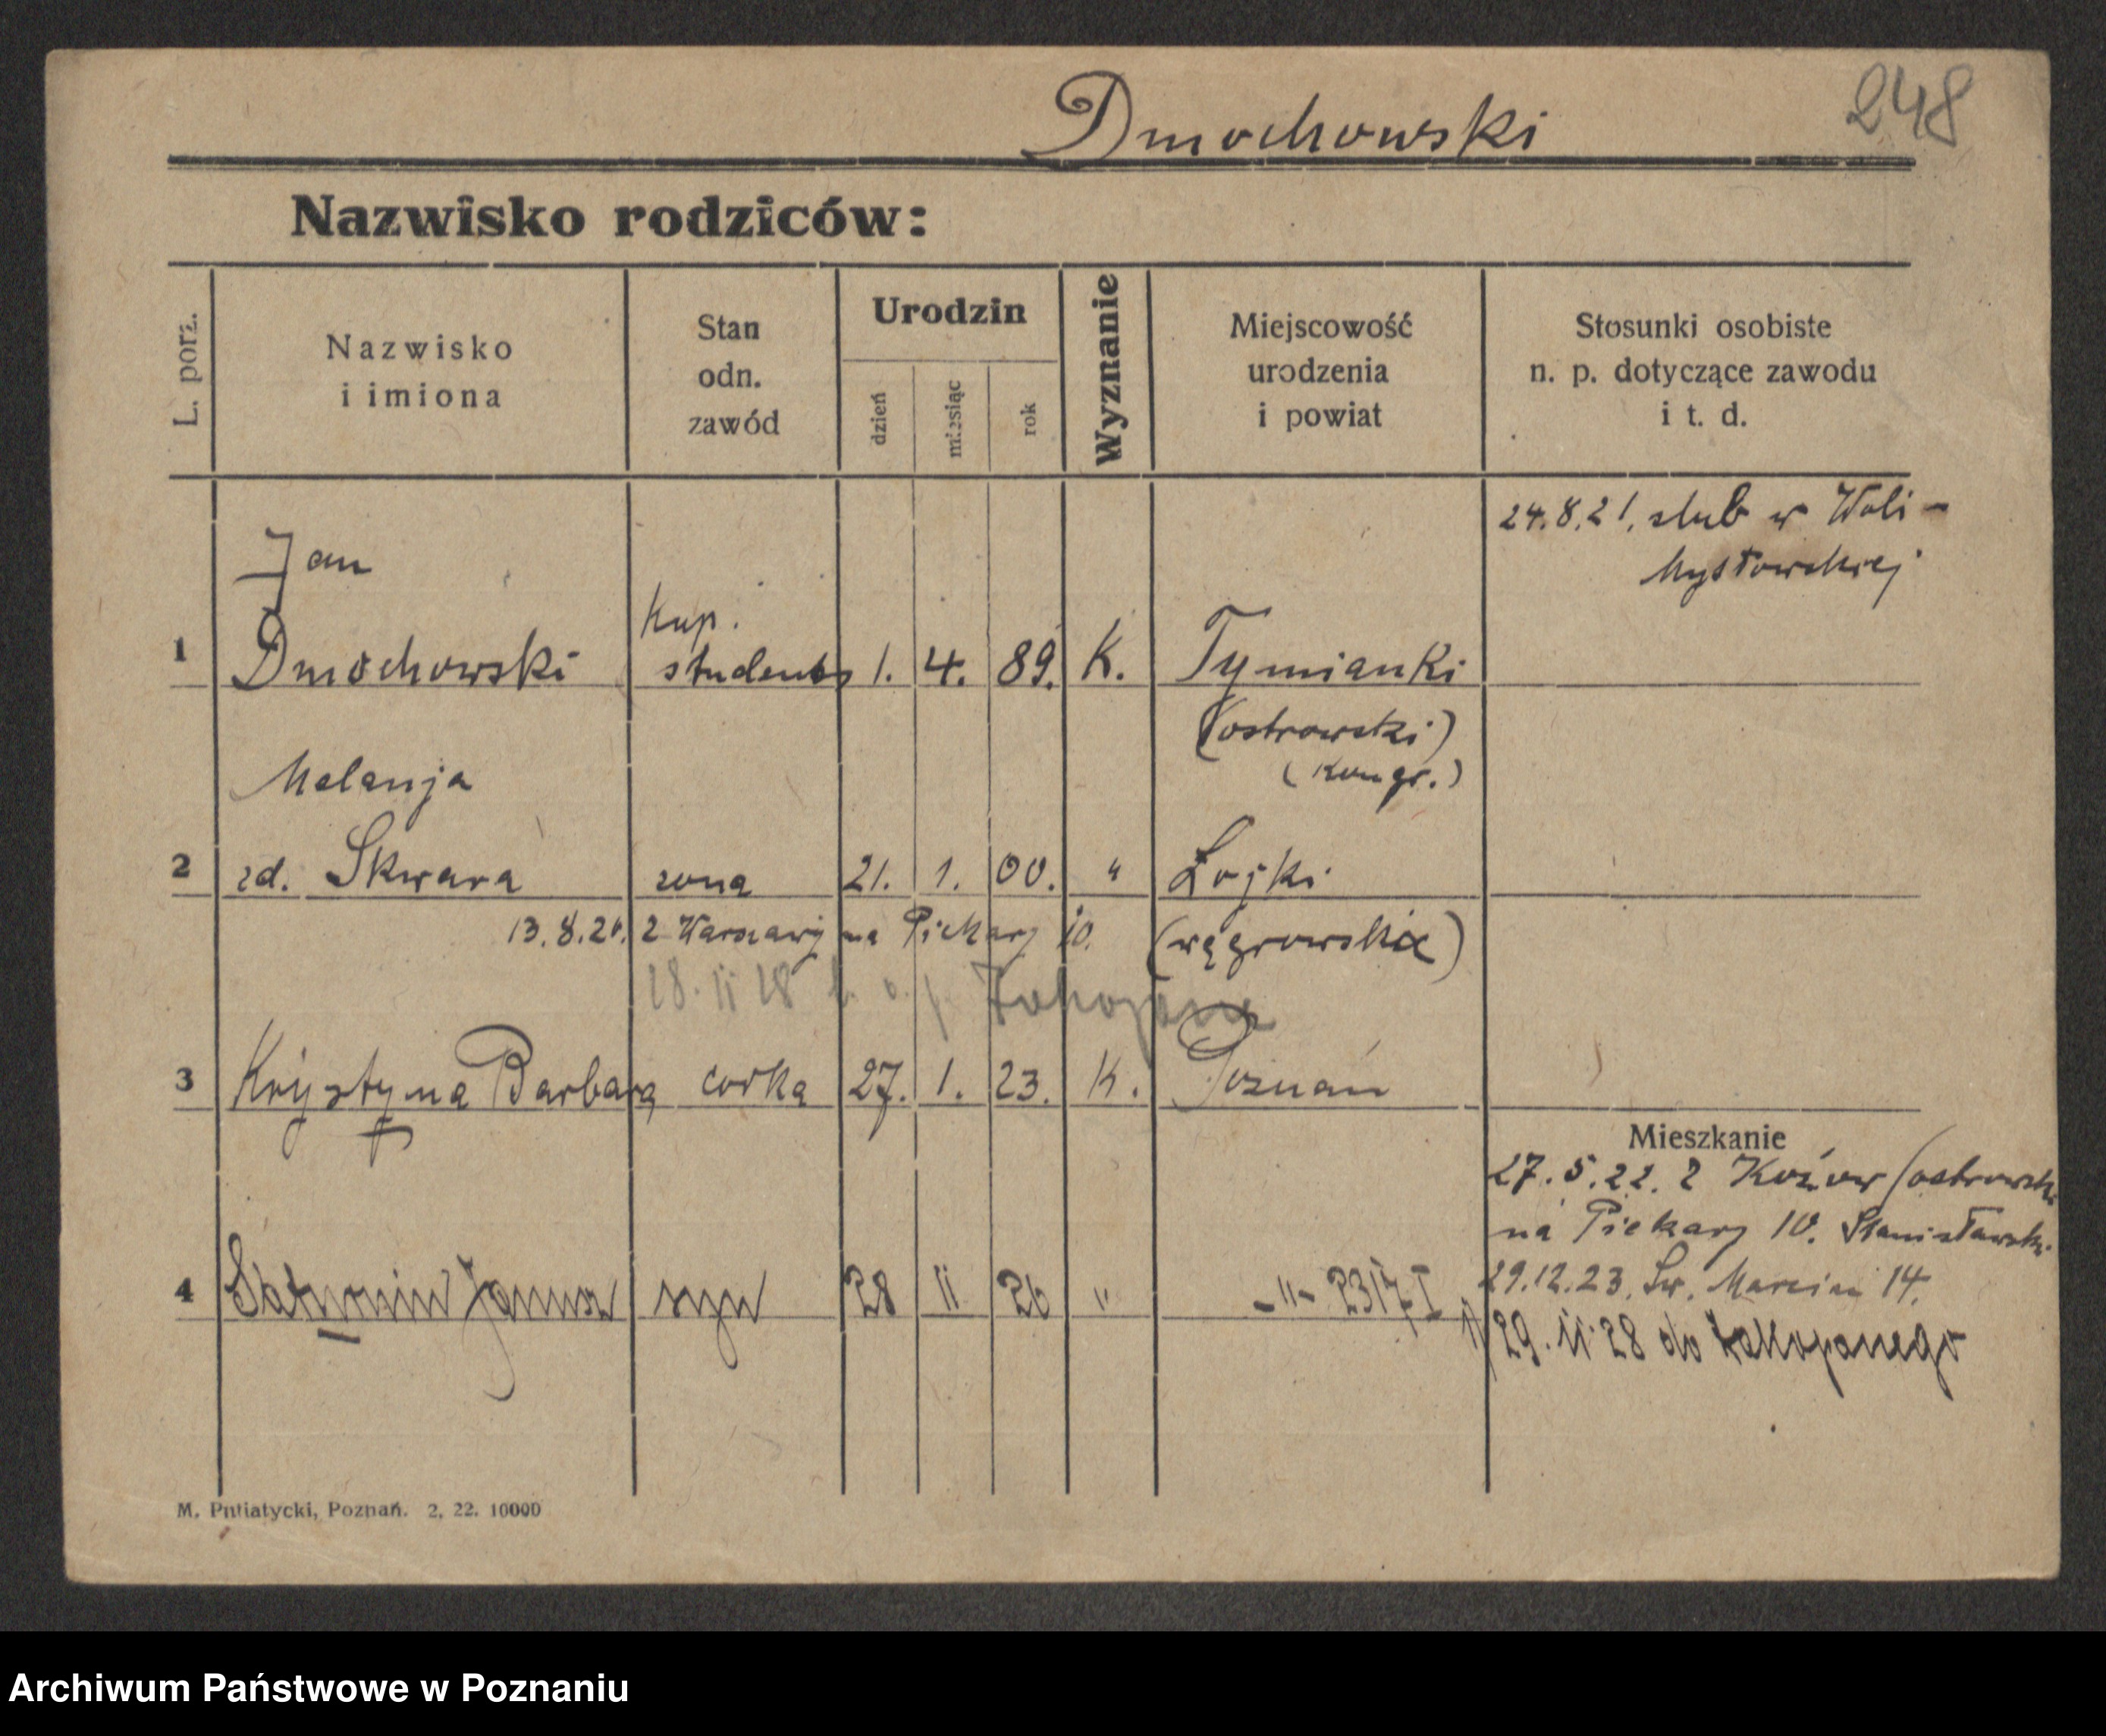 248
Dmochowski
Nazwisko rodziców:
L. porz.
Nazwisko
i imiona
Stan
odn.
zawód
Urodzin
dzień
miesiąc
rok
Wyznanie
Miejscowość
urodzenia
i powiat
Stosunki osobiste
n. p. dotyczące zawodu
i t. d.
24.8.21. slub w Woli-
Mystowskiej
Jan
kup.
1 Dmochowski student 1. 4. 89. K. Tymianki
(ostrowski)
(Kongr.)
Melanja
2 zd. Skwara zona 21. 1. 00. " Łojki
13.8.2 z Warszawy na Piekary 10. (węgrowski)
28. II 28 Zakopane
3 Krystyna Barbara corka 27. 1. 23. K. Poznań
Mieszkanie
27.5.22. z (ostrowski
na Piekary 10. Stanisławski
29.12.23. Św. Marcin 14.
4 Saturnin Janusz syn 28 II 26 " -"- 2317 I
29. II 28 do Zakopanego
M. Putiatycki, Poznań. 2, 22. 10000
Archiwum Państwowe w Poznaniu